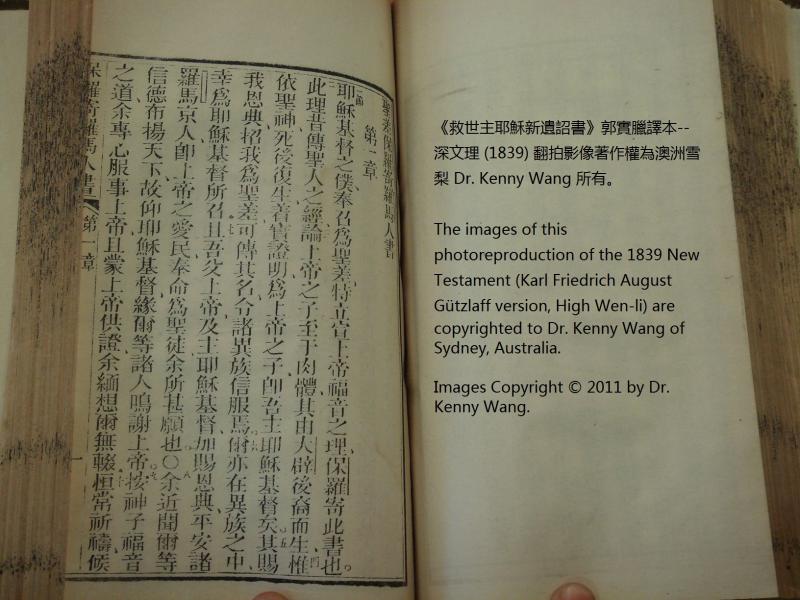 聖差保羅寄羅馬人書
第一章
耶穌基督之僕奉召爲聖差特立宣上帝福音之理保羅寄此書也。
此理昔傳聖人之經論上帝之子至于肉體其由大辟後裔而生惟
依聖神死後復生着實證明爲上帝之子卽吾主耶穌基督矣其賜
我恩典招我爲聖差可傳其名令諸異族信服焉爾亦在異族之中
幸爲耶穌基督所名且吾父上帝及主耶穌基督加賜恩典平安諸
羅馬京人卽上帝之愛民奉命爲聖徒余所甚願也〇余近聞爾等
信德布揚天下故仰耶穌基督緣爾等諸人鳴謝上帝按神子福音
之道余專心服事上帝且蒙上帝供證余緬想爾無輟恒常祈禱候
保羅寄羅馬人書 第一章
《救世主耶穌新遺詔書》郭實臘譯本--
深文理 (1839) 翻拍影像著作權為澳洲雪
梨 Dr. Kenny Wang 所有。
The images of this
photoreproduction of the 1839 New
Testament (Karl Friedrich August
Gützlaff version, High Wen-li) are
copyrighted to Dr. Kenny Wang of
Sydney, Australia.
Images Copyright © 2011 by Dr.
Kenny Wang.